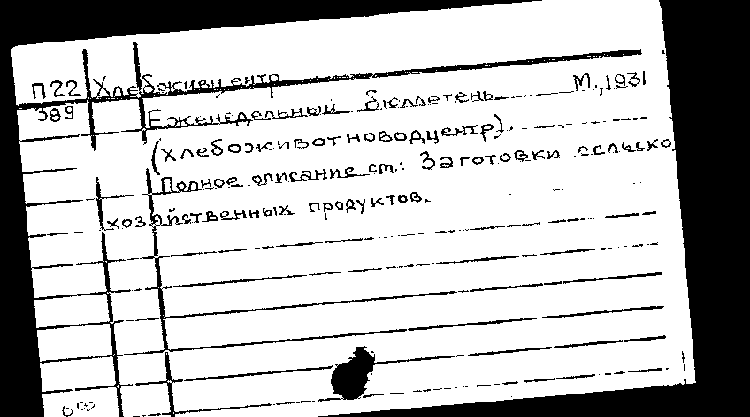 П22 Хлебживцентр
389 Еженедельный бюллетень М., 1931
(хлебоживотноводцентр).
Полное описание см.: Заготовки сельско
хозяйственных продуктов.